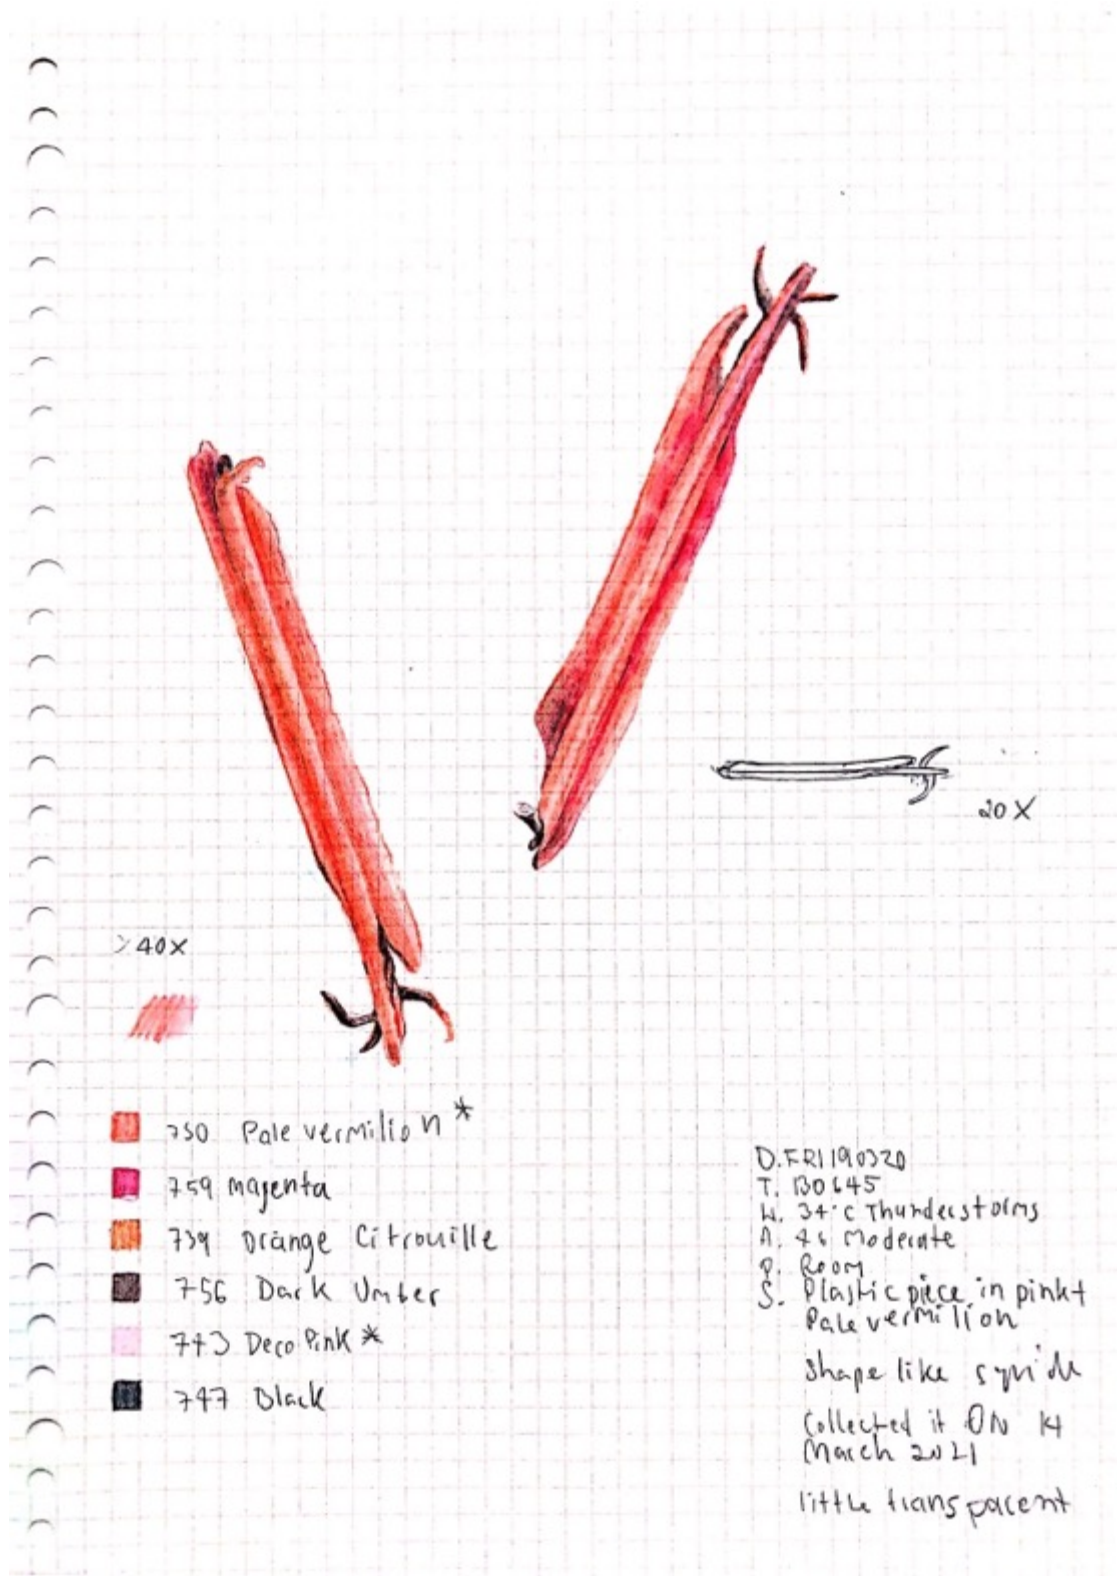 20 X
> 40X
730 Pale vermilion *
759 magenta
739 Orange Citrouille
756 Dark Umber
743 Deco Pink *
747 Black
D. FRI190320
T. 130645
W. 34°C Thunderstorms
A. 46 Moderate
P. Room
S. Plastic piece in pink +
Pale vermilion
Shape like
Collected it ON 14
March 2021
little transparent